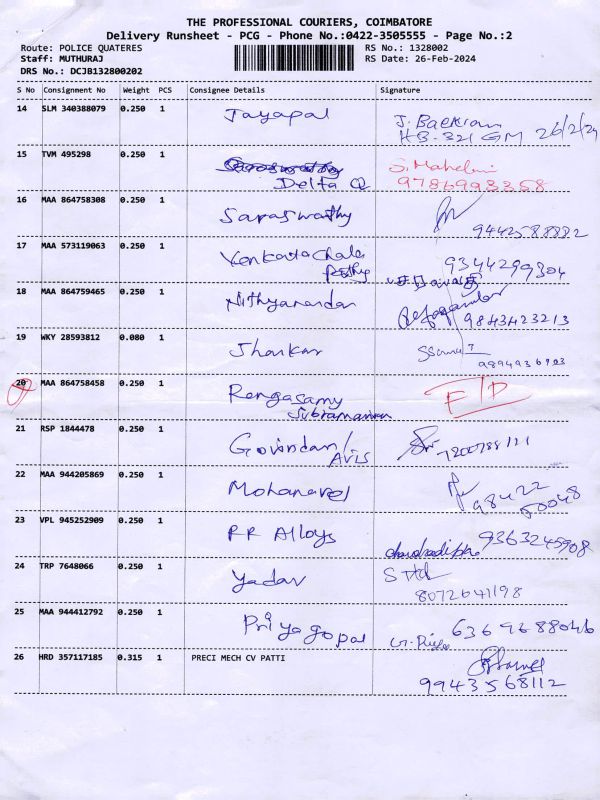 THE PROFESSIONAL COURIERS, COIMBATORE
Delivery Runsheet - PCG - Phone No.:0422-3505555 - Page No.:2
Route: POLICE QUATERES RS No.: 1328002
Staff: MUTHURAJ RS Date: 26-Feb-2024
DRS No.: DCJB132800202
S No Consignment No Weight PCS Consignee Details Signature
14 SLM 340388079 0.250 1 Jayapal J. Baekiam
HB-321 GM 26/2/24
15 TVM 495298 0.250 1 S. Mahelmi
Delta Q 9786993358
16 MAA 864758308 0.250 1 Saraswathy
9442588882
17 MAA 573119063 0.250 1 Venkatachala 9344299304
pathy
18 MAA 864759465 0.250 1 Nithyanandan 9843423213
19 WKY 28593812 0.080 1 Jhankar
9894936903
20 MAA 864758458 0.250 1 Rengasamy F/D
Subramanian
21 RSP 1844478 0.250 1 Govindan/ 7200788121
Avis
22 MAA 944205869 0.250 1 Mohanavel 98422
50048
23 VPL 945252909 0.250 1 RR Alloys 9363245908
24 TRP 7648066 0.250 1 Yadav
8072641198
25 MAA 944412792 0.250 1 Priyagopal G. Priya 6369688046
26 HRD 357117185 0.315 1 PRECI MECH CV PATTI
9943568112